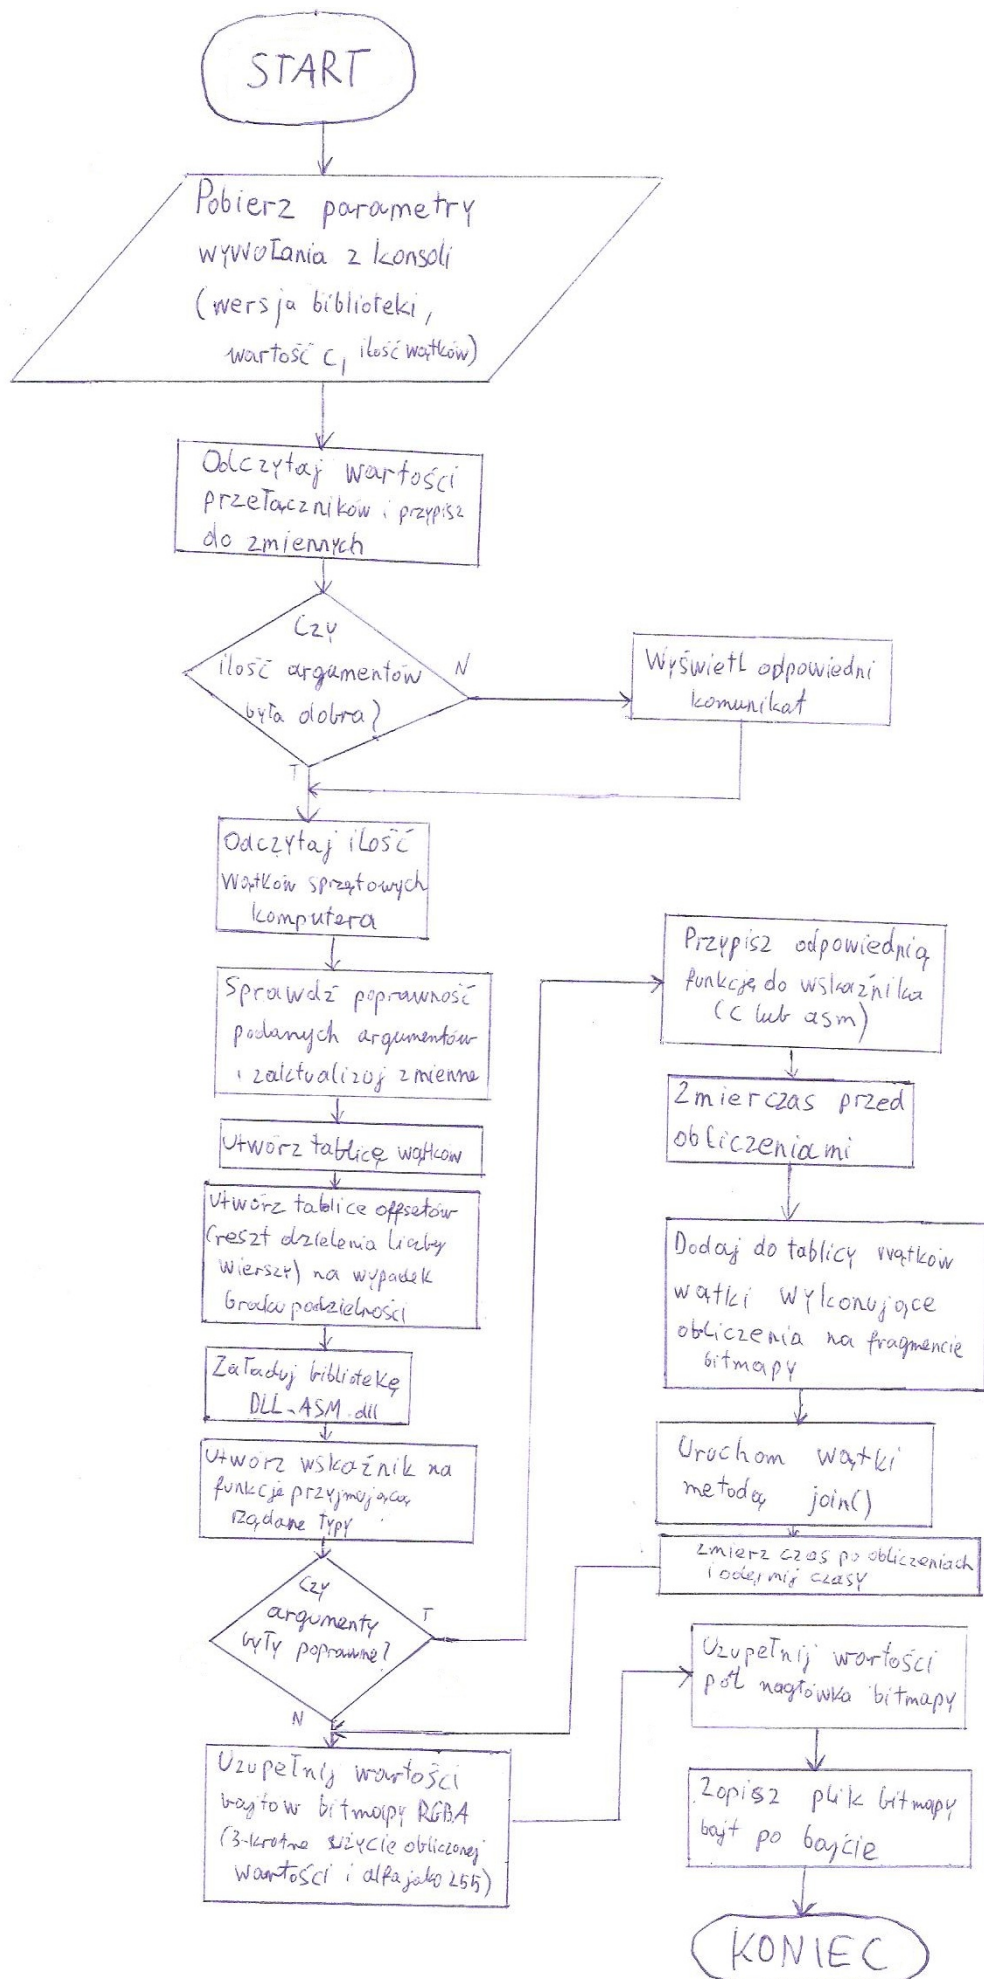 START
Pobierz parametry
wywołania z konsoli
(wersja biblioteki,
wartość c, ilość wątków)
Odczytaj wartości
przełączników i przypisz
do zmiennych
Czy
ilość argumentów
była dobra?
N
T
Wyświetl odpowiedni
komunikat
Odczytaj ilość
wątków sprzętowych
komputera
Sprawdź poprawność
podanych argumentów
i zaktualizuj zmienne
Utwórz tablicę wątków
Utwórz tablice offsetów
(reszt dzielenia liczby
wierszy) na wypadek
braku podzielności
Załaduj bibliotekę
DLL_ASM.dll
Utwórz wskaźnik na
funkcje przyjmującą
rządane typy
Czy
argumenty
były poprawne?
T
N
Przypisz odpowiednią
funkcję do wskaźnika
(C lub asm)
Zmierz czas przed
obliczeniami
Dodaj do tablicy wątków
wątki wykonujące
obliczenia na fragmencie
bitmapy
Uruchom wątki
metodą join()
zmierz czas po obliczeniach
i odejmij czasy
Uzupełnij wartości
bajtów bitmapy RGBA
(3-krotne użycie obliczonej
wartości i alfa jako 255)
Uzupełnij wartości
pól nagłówka bitmapy
Zapisz plik bitmapy
bajt po bajcie
KONIEC